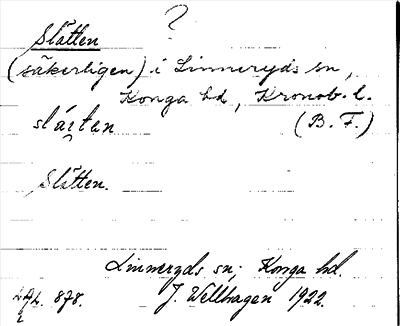 ?
Slätten
(säkerligen) i Linneryds sn,
Konga hd, Kronob. l.
slätten (B. F.)
Slätten.
Linneryds sn; Konga hd.
878. J. Wellhagen 1922.